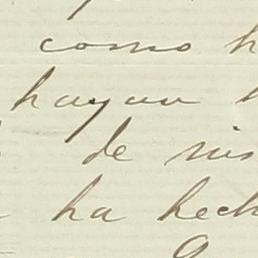 como h
hayan
de mis
ha hech